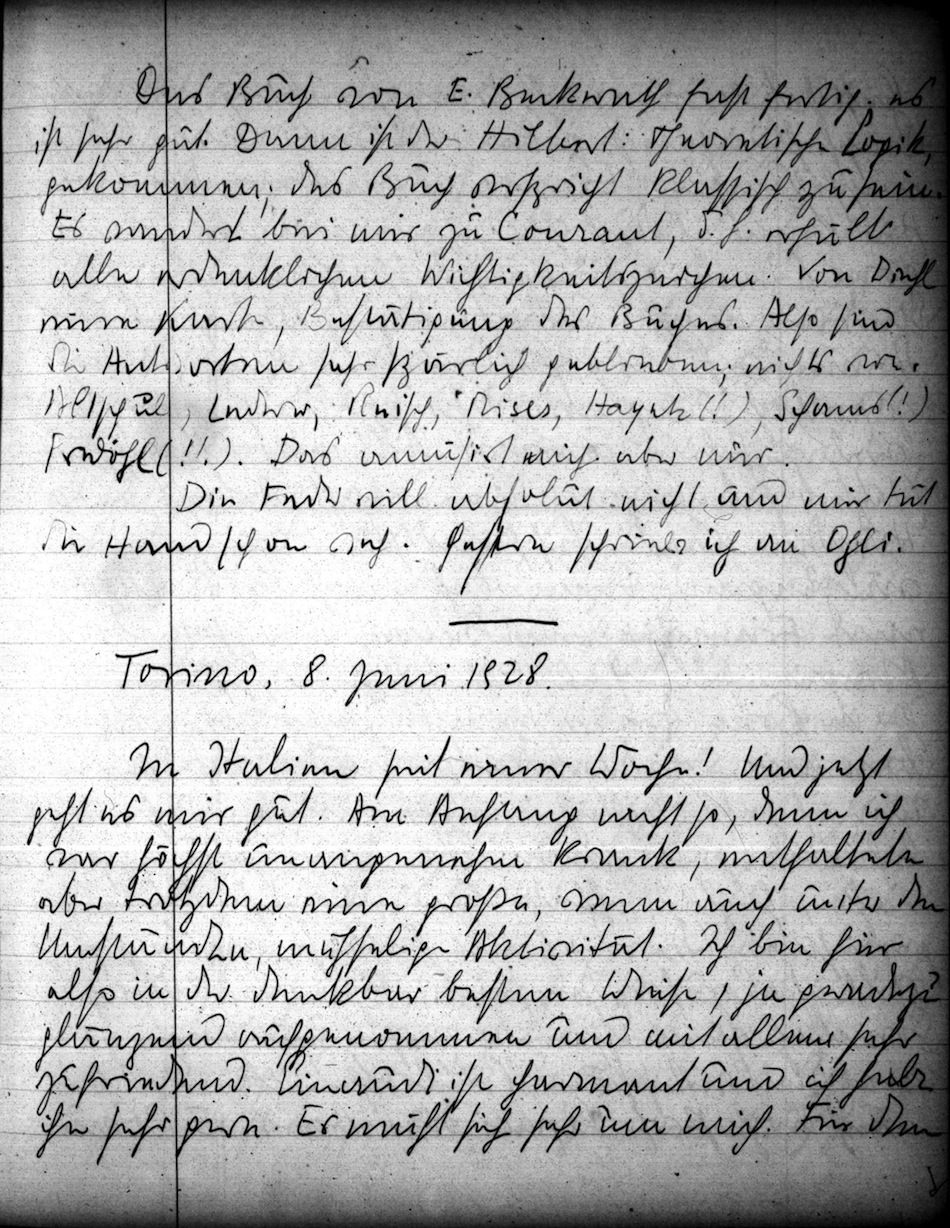 Das Buch von E. Beckerath fast fertig. es
ist sehr gut. Dann ist der Hilbert: Theoretische Logik,
gekommen; das Buch verspricht klassisch zu sein.
Es wandert bei mir zu Courant, d. h. erhält
alle erdenklichen Wichtigkeitszeichen. Von Diehl
eine Karte, Bestätigung des Buches. Also sind
die Antworten sehr spärlich geblieben; nichts von.
Altschul, Lederer, Reisch, Mises, Hayek(!), Schams(!)
Fröhl(!!). Das amüsiert mich aber nur.
Die Feder will absolut nicht und mir tut
die Hand schon weh. Gestern schrieb ich an Ohli.
Torino, 8. Juni 1928.
In Italien seit einer Woche! Und jetzt
geht es mir gut. Am Anfang nicht so, denn ich
war höchst unangenehm krank, entfaltete
aber trotzdem eine große, wenn auch unter den
Umständen, mühselige Aktivität. Ich bin hier
also in der denkbar besten Weise, ja geradezu
glänzend aufgenommen und mit allem sehr
zufriedend. Einaudi ist charmant und ich habe
ihn sehr gern. Er müht sich sehr um mich. Für den